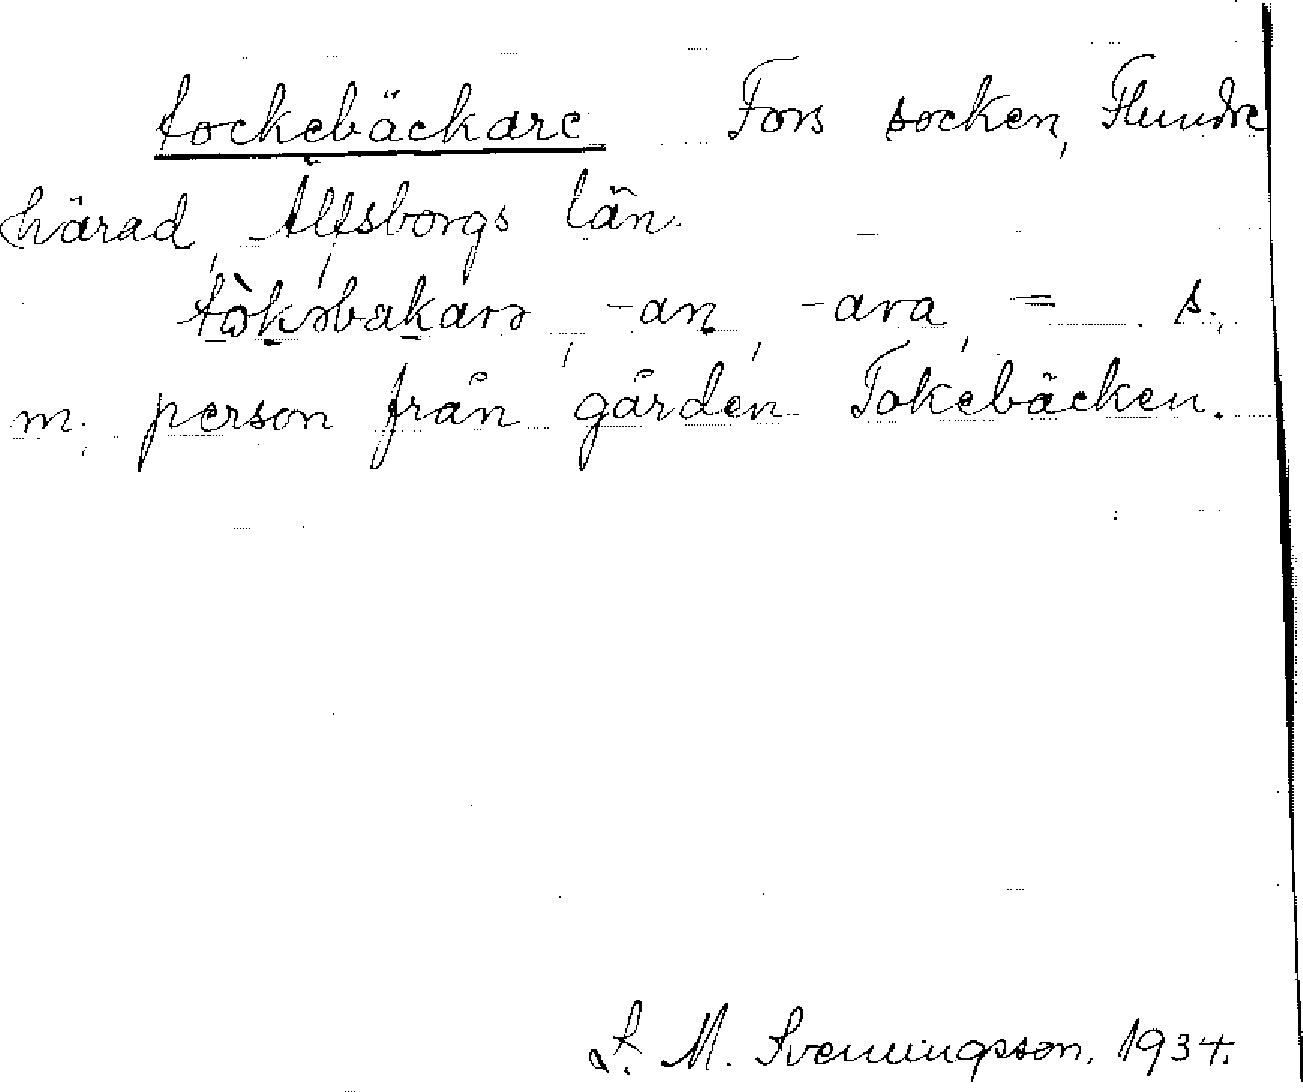 tockebäckare Fors socken, Flundre
härad, Älfsborgs län.
tòkəbakarə, -an, -ara, = s.
m. person från gården Tokebäcken.
S. M. Svenningsson. 1934.